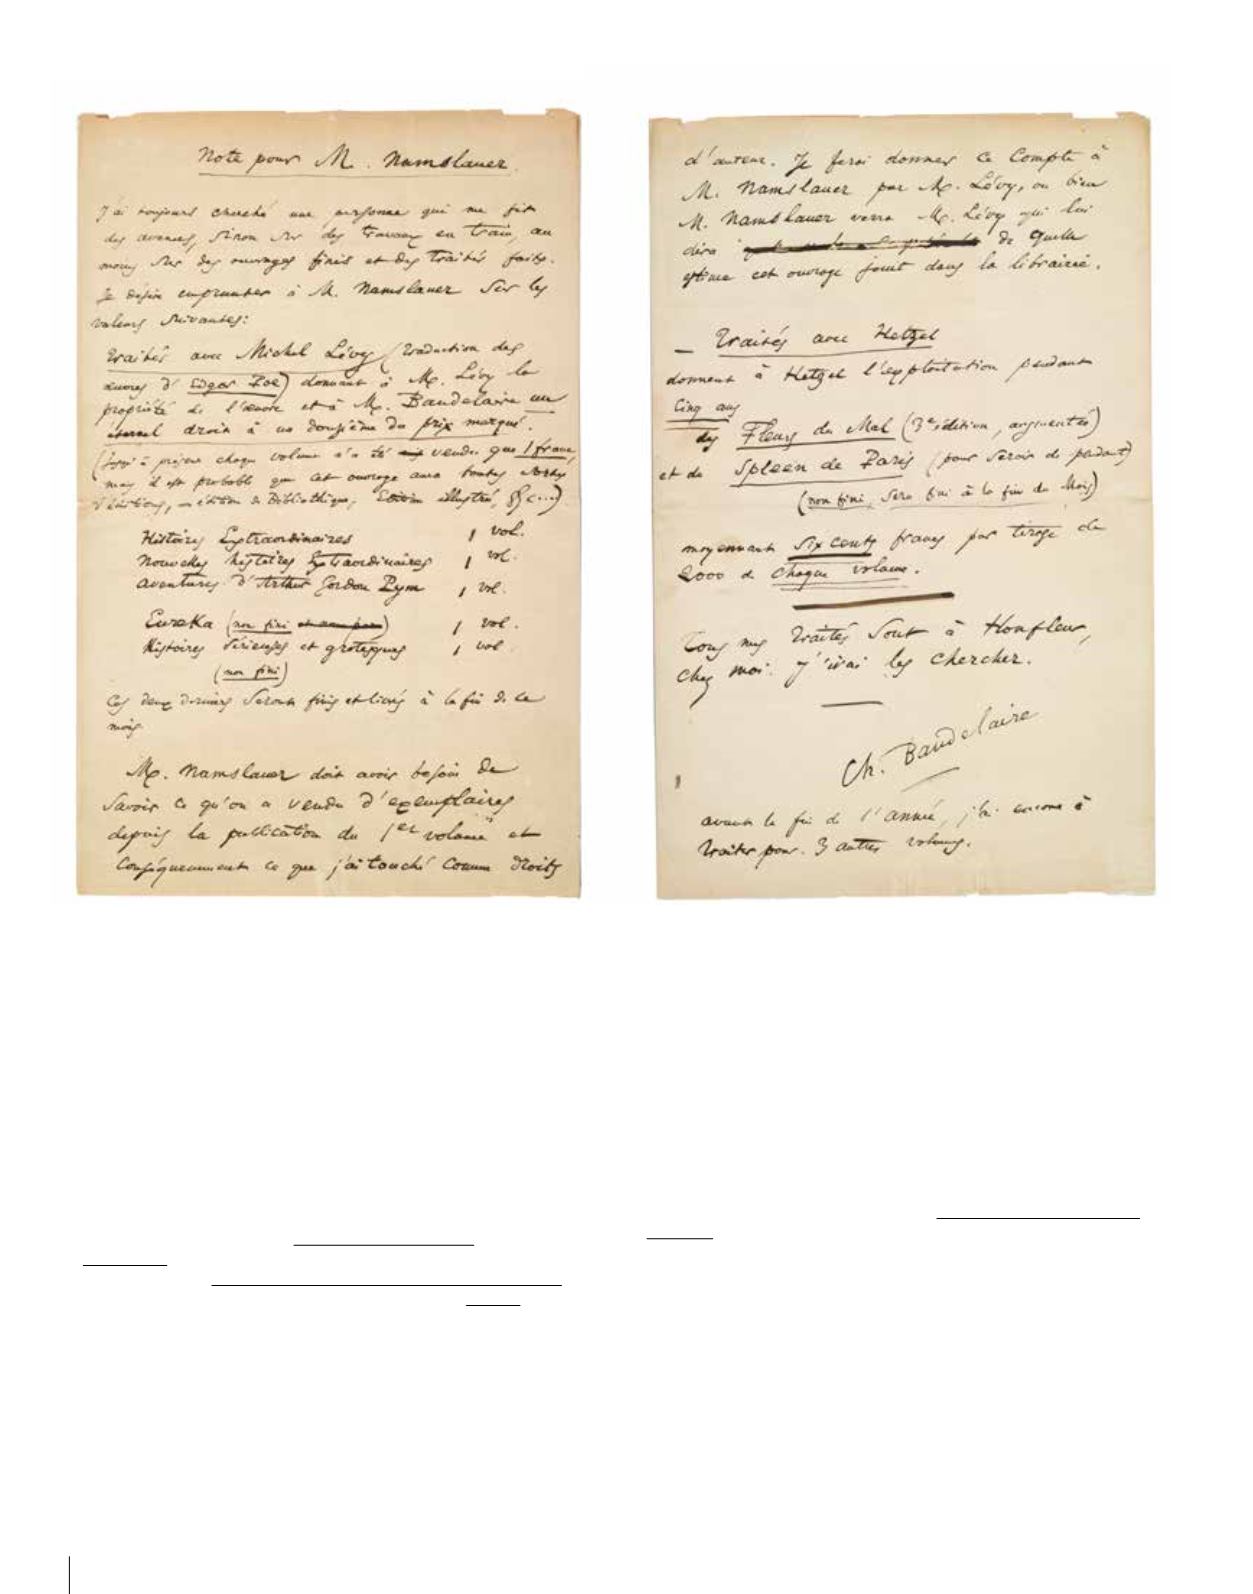 Note pour M. Namslauer.
J'ai toujours cherché une personne qui me fît
des avances, sinon sur des travaux en train, au
moins sur des ouvrages finis et des traités faits.
Je désire emprunter à M. Namslauer sur les
valeurs suivantes:
Traités avec Michel Lévy (traduction des
œuvres d'Edgar Poe) donnant à M. Lévy la
propriété de l'œuvre et à M. Baudelaire un
éternel droit à un douzième du prix marqué.
(Jusqu'à présent chaque volume n'a été vendu que 1 franc,
mais il est probable que cet ouvrage aura toutes sortes
d'éditions, – édition de Bibliothèque, Édition illustrée, &c...)
Histoires Extraordinaires 1 vol.
Nouvelles histoires Extraordinaires 1 vol.
Aventures d'Arthur Gordon Pym 1 vol.
Eureka (non fini) 1 vol.
Histoires Sérieuses et grotesques 1 vol.
(non fini)
Ces deux derniers seront finis et livrés à la fin de ce
mois.
M. Namslauer doit avoir besoin de
savoir ce qu'on a vendu d'exemplaires
depuis la publication du 1er volume et
conséquemment ce que j'ai touché comme droits
d'auteur. Je ferai donner ce compte à
M. Namslauer par M. Lévy, ou bien
M. Namslauer verra M. Lévy qui lui
dira de quelle
estime cet ouvrage jouit dans la librairie.
– Traités avec Hetzel
donnent à Hetzel l'exploitation pendant
cinq ans
des Fleurs du Mal (3e édition, augmentée)
et du Spleen de Paris (pour servir de pendant)
(non fini, sera fini à la fin du Mois)
moyennant six cents francs par tirage de
2000 de chaque volume.
Tous mes traités sont à Honfleur,
chez moi. J'irai les chercher.
Ch. Baudelaire
avant la fin de l'année, j'ai encore à
traiter pour 3 autres volumes.